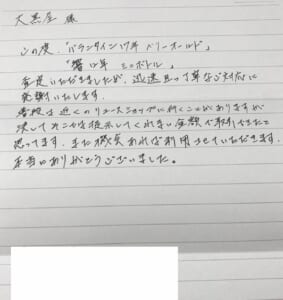 大黒屋 様
この度、「バランタイン17年 ベリーオールド」
「響12年 ミニボトル」
査定いただきましたが、迅速且つ丁寧なご対応に
感謝いたします。
普段は近くのリユースショップに行くことがありますが
決してそこでは提示してくれない金額で取引できたと
思ってます。また機会あれば利用させていただきます。
本当にありがとうございました。